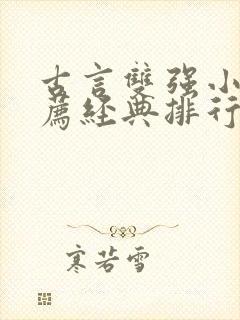 古言雙强小
薦經典排行
寒若雪